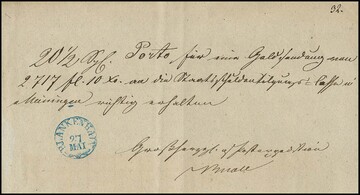 32.
20½ Sgl. Porto für eine Geldsendung von
2717 fl. 10 Xr. an die Staatsschuldentilgungs-Casse in
Meiningen richtig erhalten
BLANKENHAIN
27
MAI
Großherzgl.